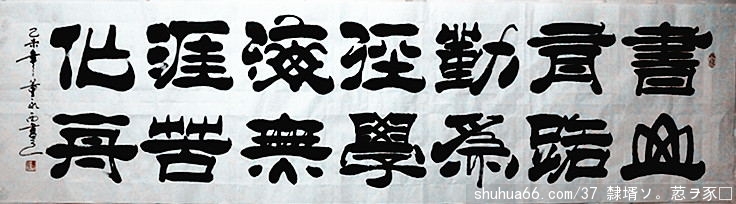 書山
有路
勤為
徑學
海無
涯苦
作舟
shuhua66.com/37